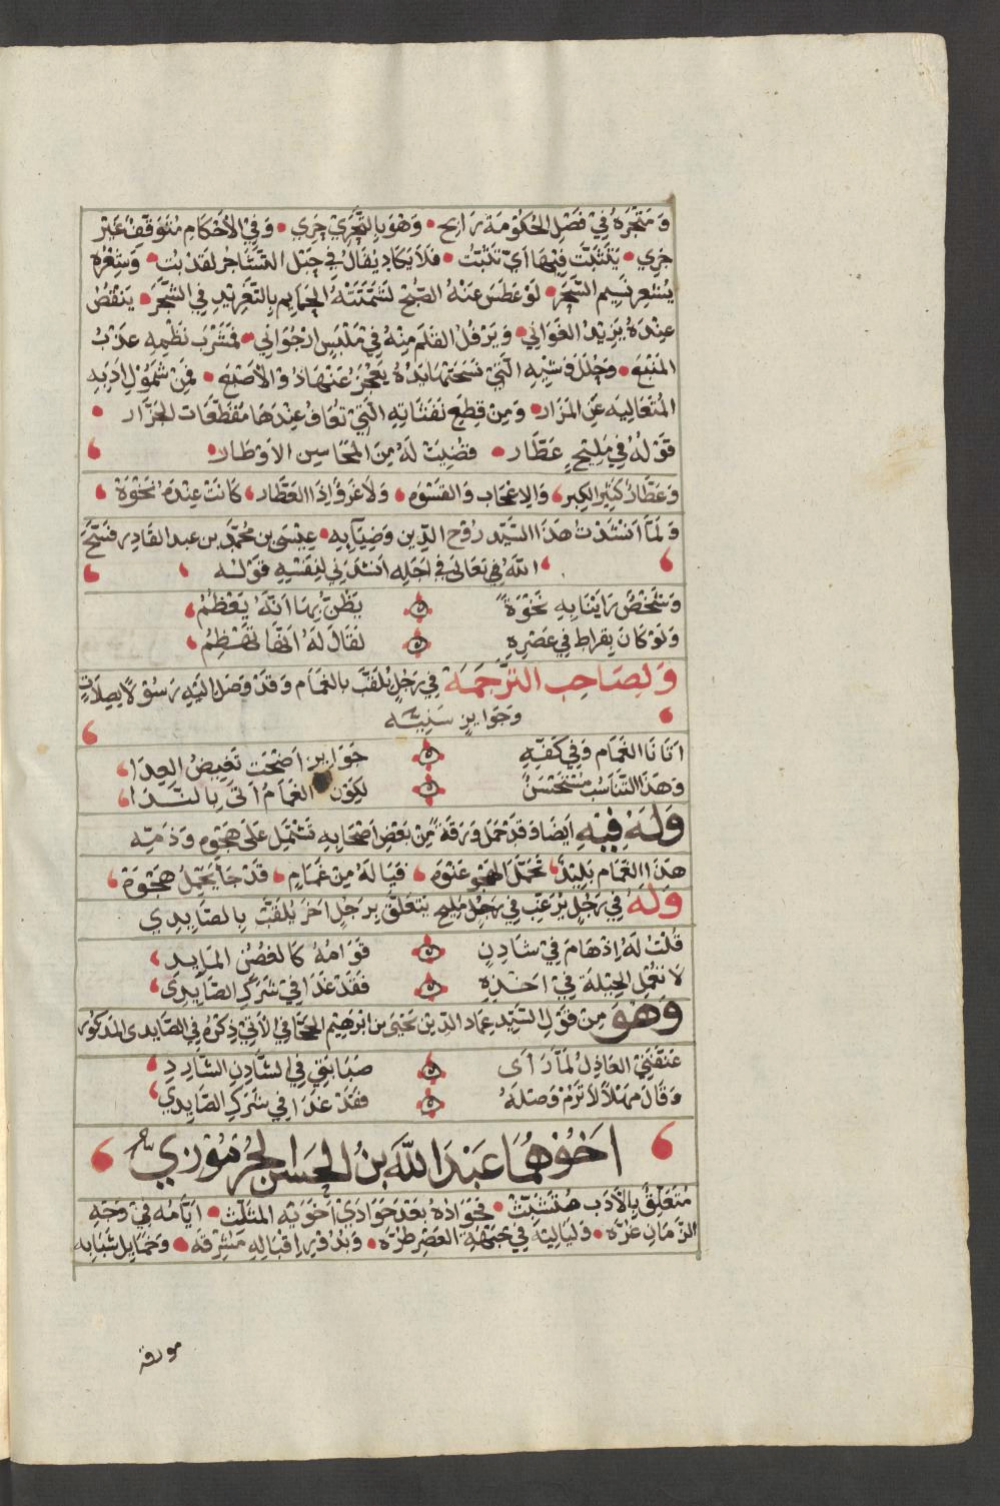 وَمَتْجَرَهُ فِي فَصْلِ الحُكُوْمَةِ رَابِحٌ • وَهْوَ بِالتَّجَرِّيْ جَرِي • وَفِي الأَحْكَامِ مُتَوَقِّفٌ غَيْرُ
جَرِي • يَتَثَبَّتُ فِيْهَا أَيَّ تَثَبُّتْ • فَلَا يَكَادُ يُقَالُ فِي حَبْلِ التَّشَاجُرِ لَقَدْ بُتْ • وَشِعْرُهُ
يُشْعِرُ نَسِيْمَ السَّحَرْ • لَوْ عَطَسَ عَنْهُ الصُّبْحُ لَشَمَّتَتْهُ الحَمَايِمُ بِالتَّغْرِيْدِ فِي الشَّجَرْ • يَنْقُصُ
عِنْدَهُ يَزِيْدُ الغَوَانِي • وَيَرْفُلُ القَلَمُ مِنْهُ فِيْ مَلْبَسٍ ارْجُوَانِي • فَمَشْرَبُ نَظْمِهِ عَذْبُ
المَنْبَعِ • وَحُلَلُ وَشْيِهِ الَّتِيْ نَسَجَتْهَا يَدُهُ يَعْجِزُ عَنْهَا ذُو الأَصْبَعِ • فَمِنْ شُمُوْلِ ادَبِهِ
المُتَعَالِيَهِ عَنِ المَزَارْ • وَمِنْ قِطَعِ نَفَثَاتِهِ الَّتِيْ تُعَافُ عِنْدَهَا مُقَطَّعَاتُ الجَزَّار •
قَوْلُهُ فِي مَلِيْحٍ عَطَّار • قُضِيَتْ لَهُ مِنَ المَحَاسِنِ الأَوْطَار •
وَعَطَّارٌ كَثِيْرُ الكِبْرِ وَالاِعْجَابِ وَالقَسْوَهْ وَلَا غَرْوَ إِذَا العَطَّارُ كَانَتْ عِنْدَهُ نَخْوَهْ
وَلَمَّا انْشَدْتُ هَذَا السَّيِّد رُوْحَ الدِّيْن وَضِيَآيِهِ • عِيْسَى بن مُحَمَّدِ بن عبد القَادِر فَسَّحَ
اللَّهُ تَعَالَى فِي اجَلِهِ انْشَدَنِي لِنَفْسِهِ قَوْلَهُ
وَشَخْصٌ رَايْنَا بِهِ نَخْوَةً يَظُنُّ بِهَا انَّهُ يَعْظُمُ
وَلَوْ كَانَ بِقْرَاطُ فِي عَصْرِهِ لَقَالَ لَهُ انَّهَا
وَلِصَاحِبِ التَّرْجَمَهْ فِي رَجُلٍ يُلَقَّبُ بِالغَمَام وَقَدْ وَصَلَ الَيْهِ رَسُوْلًا بِصِلَاتٍ
وَجَوَايِزٍ سَنِيَّه
اتَانَا الغَمَام وَفِي كَفِّهِ جَوَايِزُ اضْحَتْ تَغِيْضُ العِدَا
وَهَذَا التَّنَاسُبُ مُسْتَحْسَنٌ لِكَوْنِ الغَمَامُ اتَى بِالنَّدَا
وَلَهُ فِيْهِ ايْضًا وَقَدْ حَمَلَ وَرَقَةً مِنْ بَعْضِ اصْحَابِهِ تَشْتَمِلُ عَلَى هَجْوِهِ وَذَمِّه
هَذَا الغَمَام بَلِيْدٌ تَحَمَّلَ الهَجْوَ عَنْوَهْ فَيَا لَهُ مِنْ غَمَامٍ قَدْ جَا يَحْمِلُ هَجْوَهْ
وَلَهُ فِي رَجُلٍ يَرْغَبُ فِي رَجُلٍ مَلِيْح يَتَعَلَّقُ بِرَجُلٍ اخَرَ يُلَقَّبُ بِالصَّايِدِي
قُلْتُ لَهُ اِذْ هَامَ فِيْ شَادِنٍ قَوَامُهُ كَالغُصُنِ المَايِدِ
لَا تُعْمِلِ الحِيْلَةَ فِيْ اخْذِهِ فَقَدْ غَدَا فِيْ شَرَكِ الصَّايِدِي
وَهْوَ مِنْ قَوْلِ السَّيِّدِ عِمَادِ الدِّيْن يَحْيَى بن ابْرَهِيْم الجَحَّافِي الأَتِيْ ذِكْرُهُ فِي الصَّايِدِي المَذْكُوْر
عَنَّفَنِيْ العَاذِلُ لَمَّا رَاَى صَبَابَتِيْ فِي الشَّادِنِ الشَّارِدِ
وَقَالَ مَهْلًا لَا تَرُمْ وَصْلَهُ فَقَدْ غَدَا فِي شَرَكِ الصَّايِدِي
اخُوْهُمَا عَبْدَ اللَّه بنُ الحَسَن الجُرْمُوْزِي
مُتَعَلِّقٌ بِالأَدَبِ مُتَشَبِّثْ • فَجَوَادُهُ بَعْدَ جَوَادَيْ اخَوَيْهِ المُثَلِّثْ • ايَّامُهُ فِيْ وَجْهِ
الزَّمَانِ غُرَّه • وَلَيَالِيْهُ فِيْ جَبْهَةِ العَصْرِ طُرَّه • وَبُدُوْرُ اِقْبَالِهِ مُشْرِقَه • وَخَمَايِلُ شَبَابِهِ
مورقة